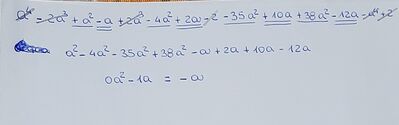 a⁴ - 2a³ + a² - a + 2a³ - 4a² + 2a - 2 - 35a² + 10a + 38a² - 12a - a⁴ + 2
a² - 4a² - 35a² + 38a² - a + 2a + 10a - 12a
0a² - 1a = -a